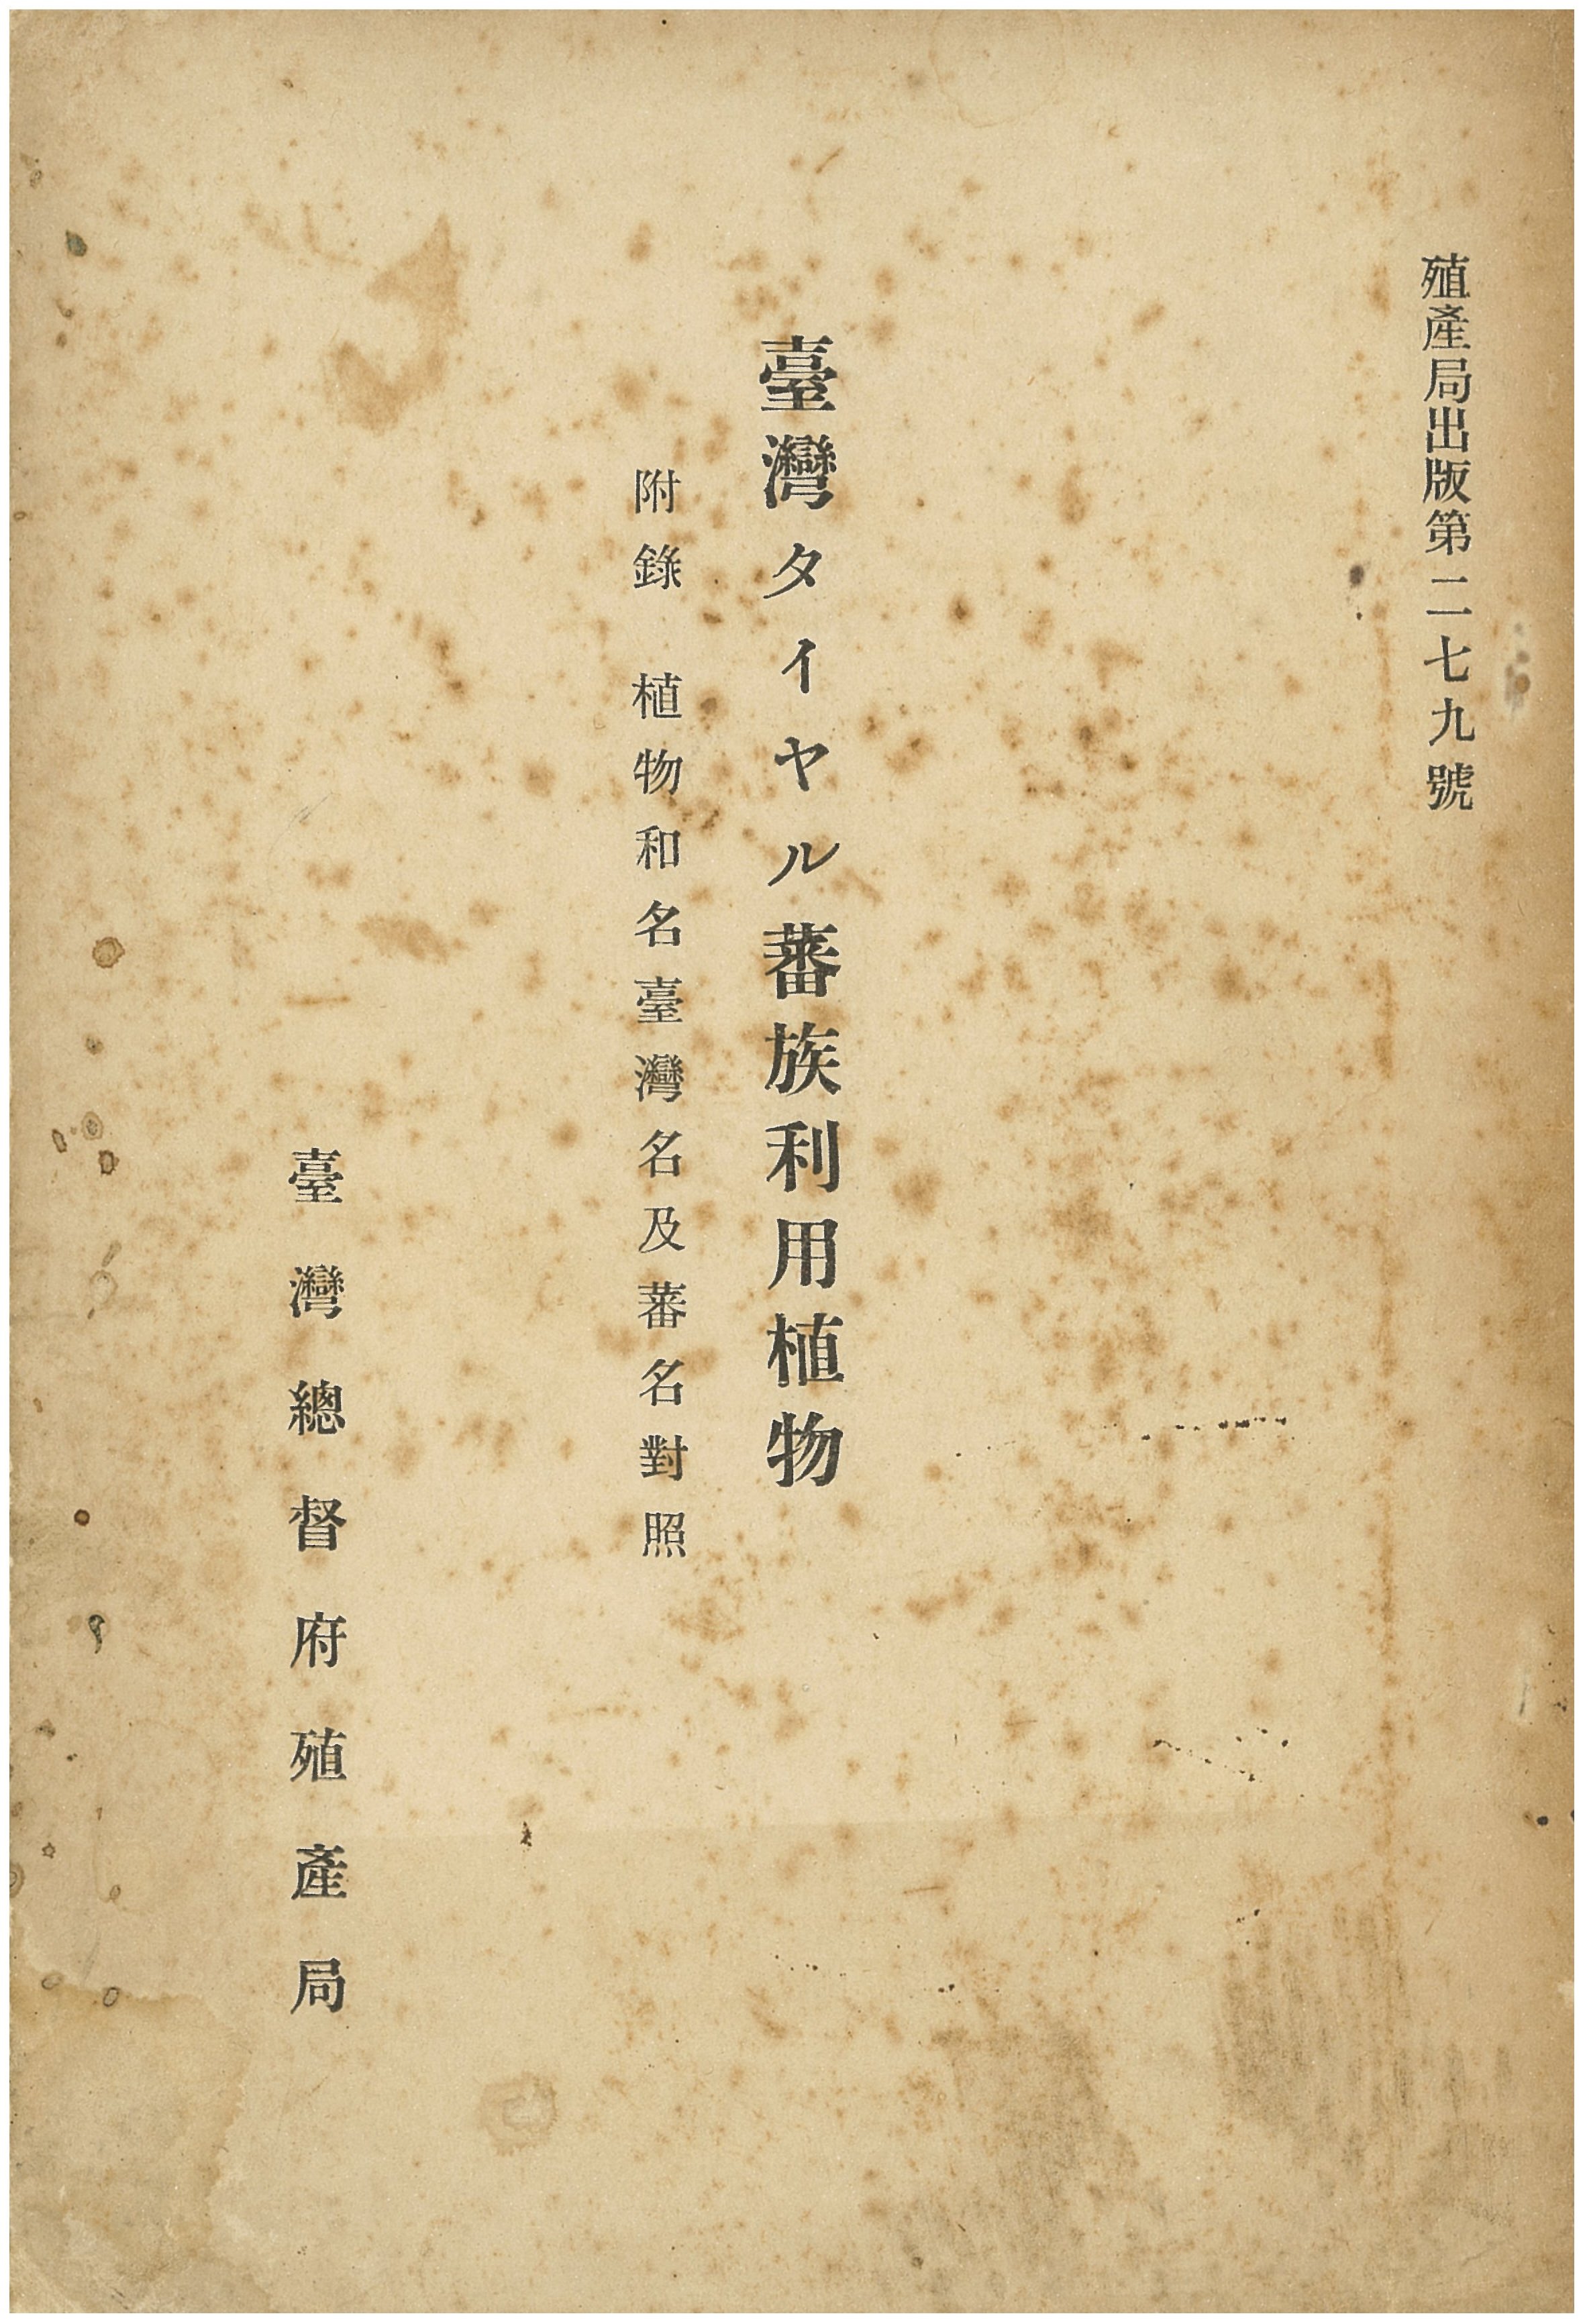 殖產局出版第二七九號
臺灣タイヤル蕃族利用植物
附錄 植物和名臺灣名及蕃名對照
臺灣總督府殖產局